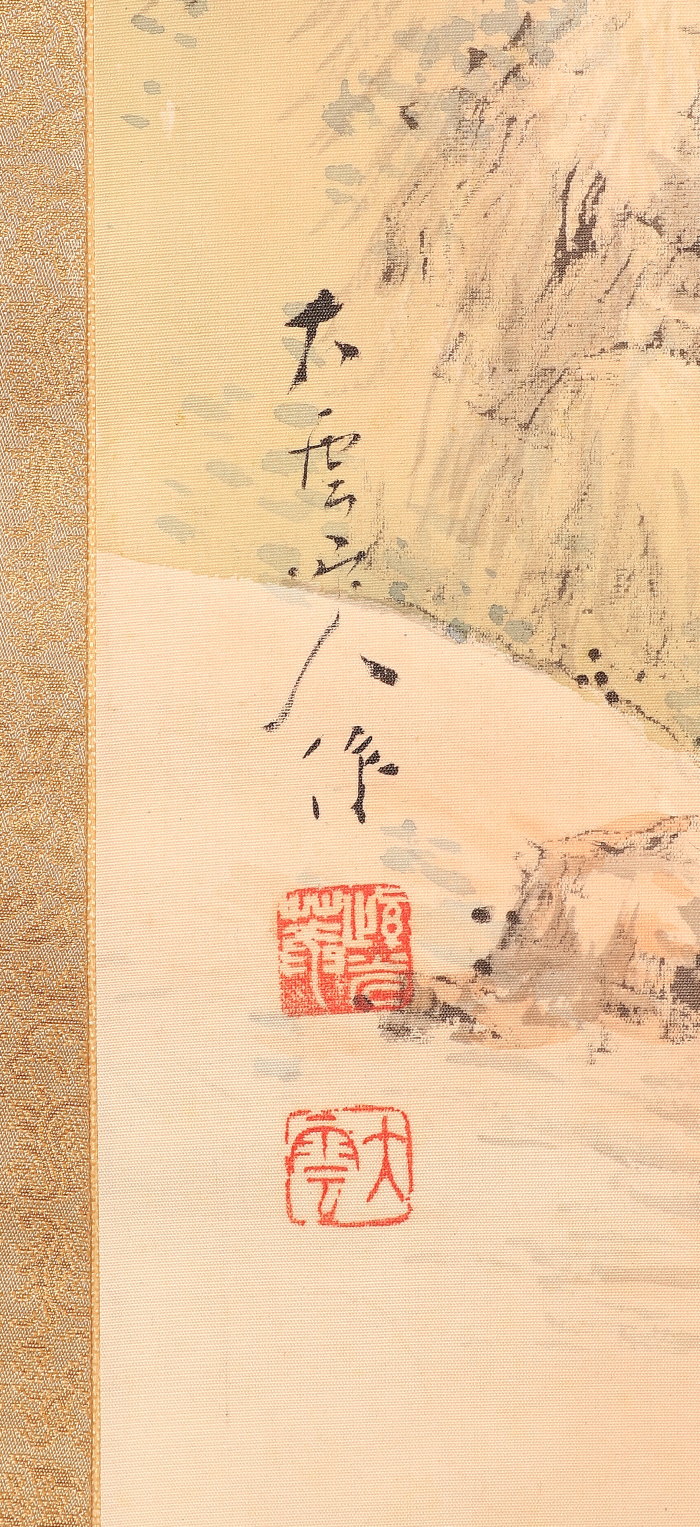 大雲山人作
大雲